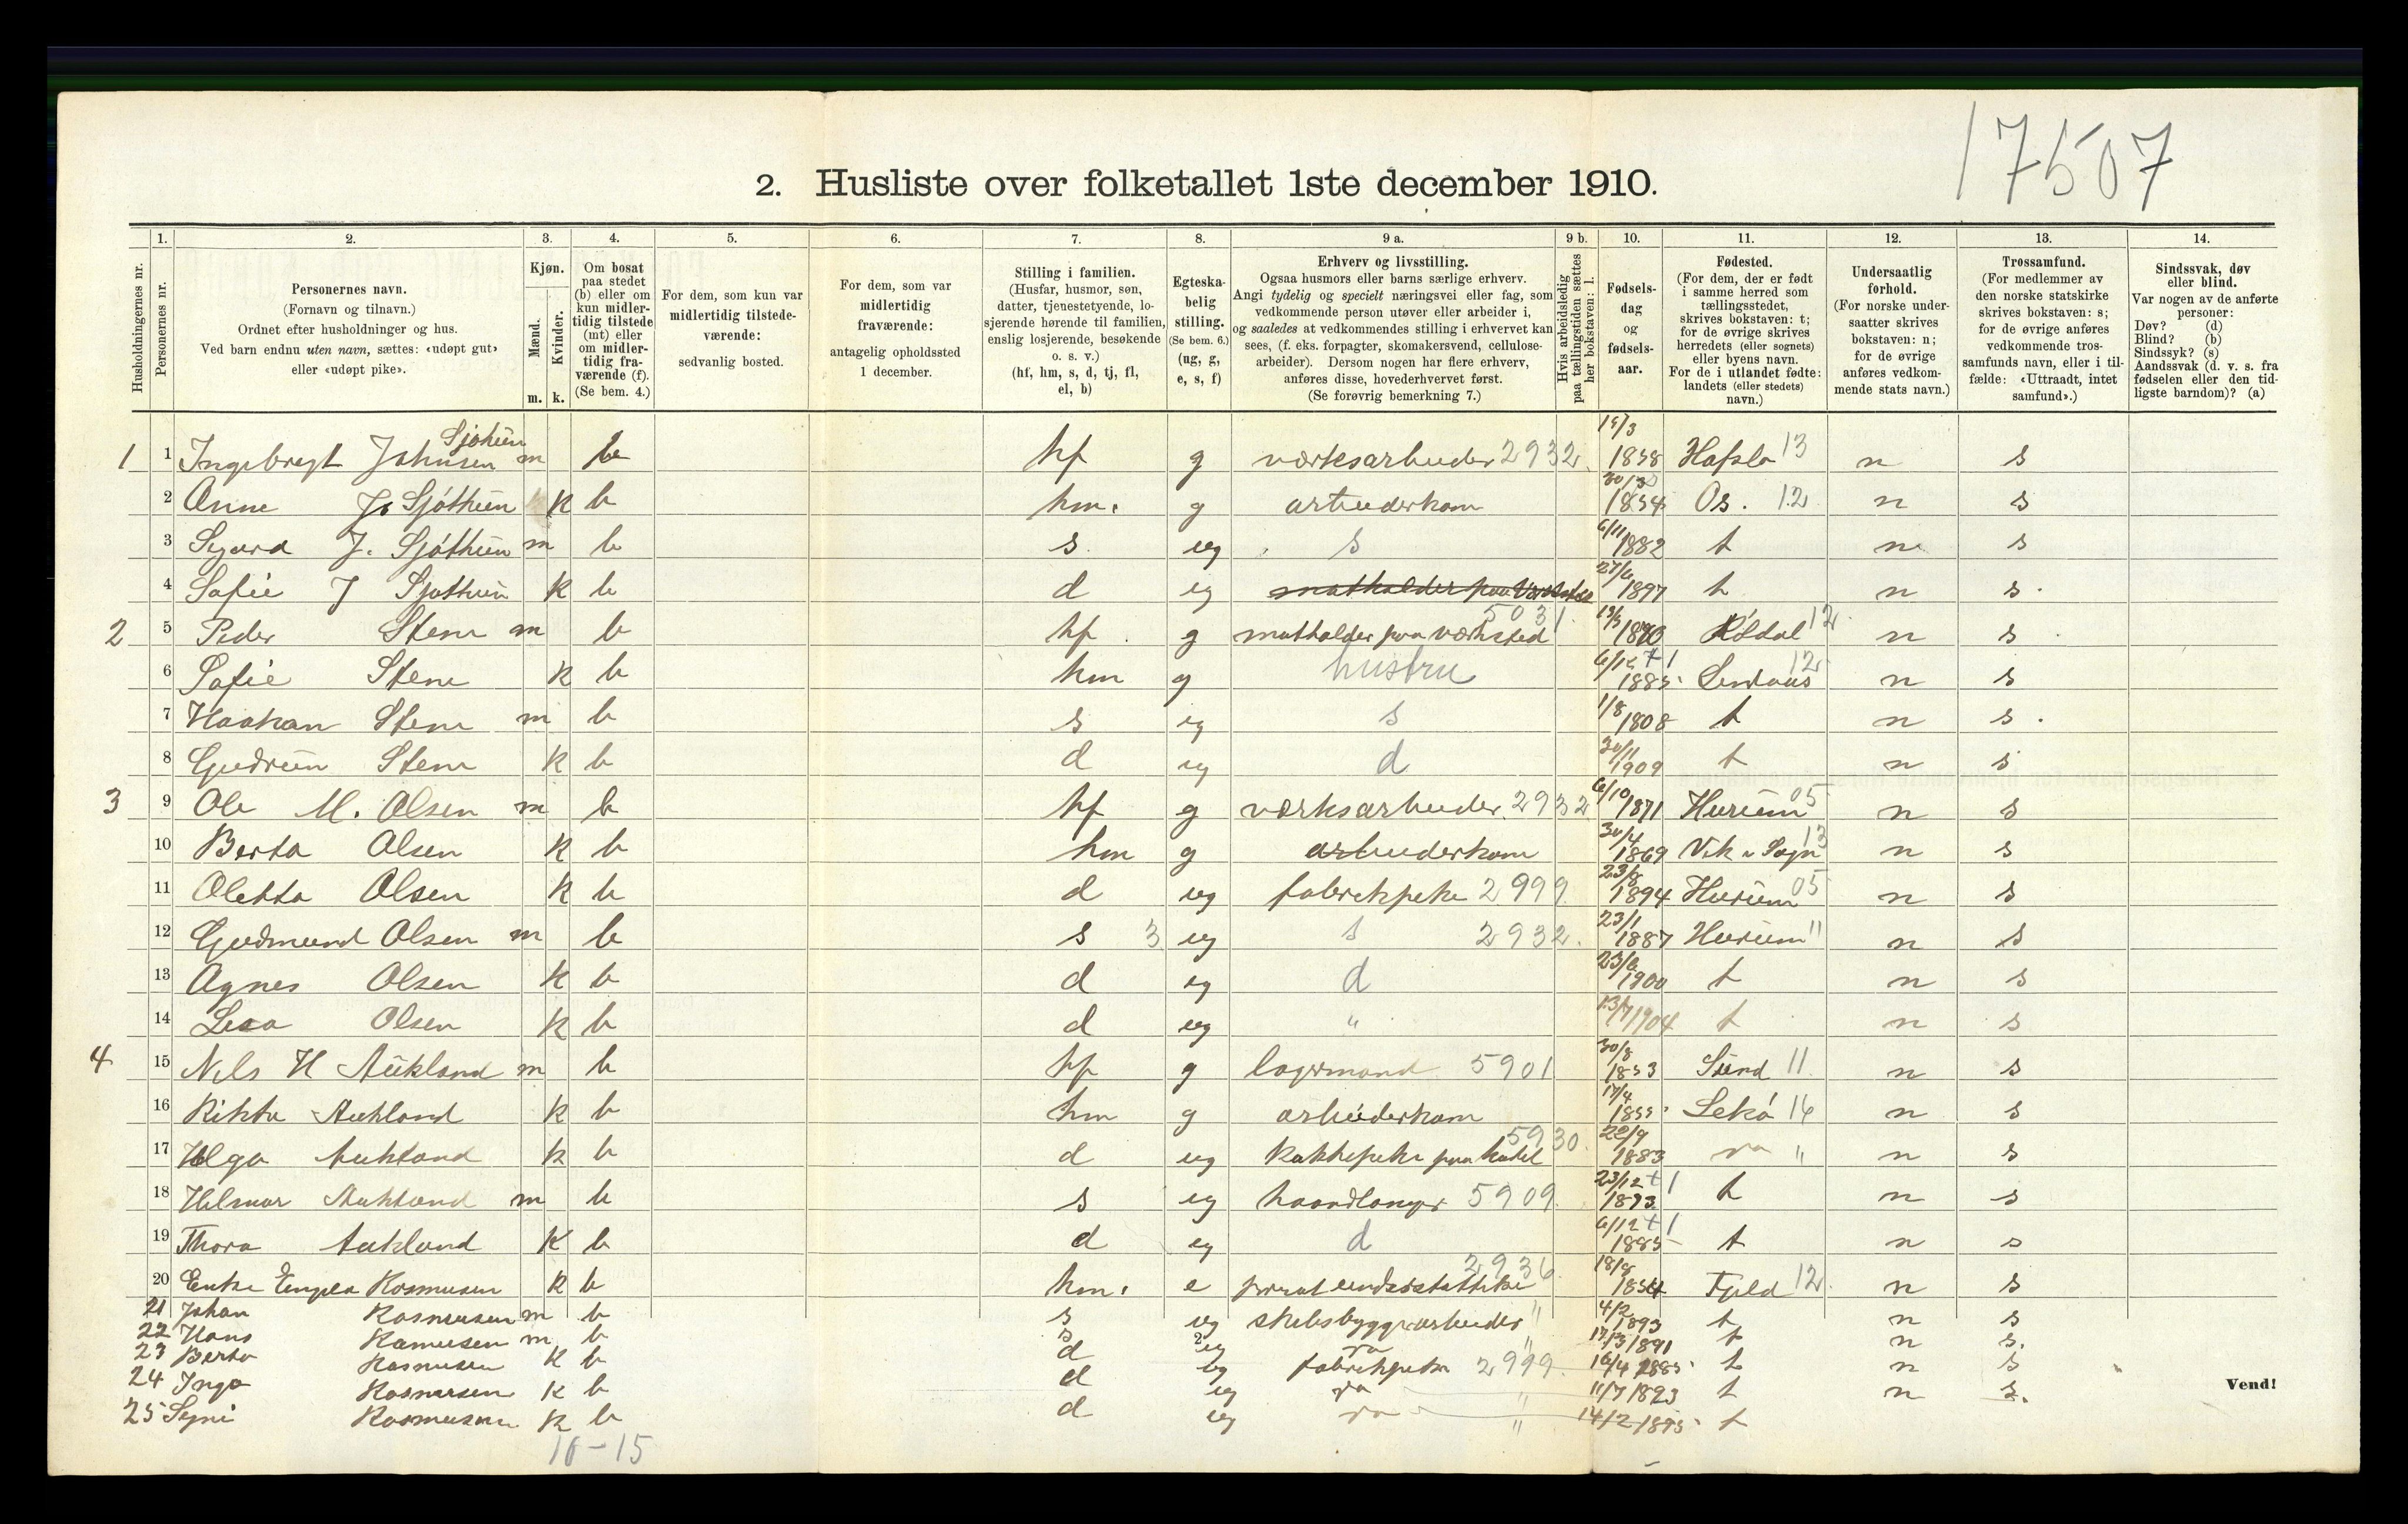 17507
2. Husliste over folketallet 1ste december 1910.
1. 2. 3. 4. 5. 6. 7. 8. 9 a. 9 b. 10. 11. 12. 13. 14.
Husholdningernes nr.
Personernes nr.
Personernes navn.
(Fornavn og tilnavn.)
Ordnet efter husholdninger og hus.
Ved barn endnu uten navn, sættes: «udøpt gut»
eller «udøpt pike».
Kjøn.
Mænd.
Kvinder.
m. k.
Om bosat
paa stedet
(b) eller om
kun midler-
tidig tilstede
(mt) eller
om midler-
tidig fra-
værende (f).
(Se bem. 4.)
For dem, som kun var
midlertidig tilstede-
værende:
sedvanlig bosted.
For dem, som var
midlertidig
fraværende:
antagelig opholdssted
1 december.
Stilling i familien.
(Husfar, husmor, søn,
datter, tjenestetyende, lo-
sjerende hørende til familien,
enslig losjerende, besøkende
o. s. v.)
(hf, hm, s, d, tj, fl,
el, b)
Egteska-
belig
stilling.
(Se bem. 6.)
(ug, g,
e, s, f)
Erhverv og livsstilling.
Ogsaa husmors eller barns særlige erhverv.
Angi tydelig og specielt næringsvei eller fag, som
vedkommende person utøver eller arbeider i,
og saaledes at vedkommendes stilling i erhvervet kan
sees, (f. eks. forpagter, skomakersvend, cellulose-
arbeider). Dersom nogen har flere erhverv,
anføres disse, hovederhvervet først.
(Se forøvrig bemerkning 7.)
Hvis arbeidsledig
paa tællingstiden sættes
her bokstaven: l.
Fødsels-
dag
og
fødsels-
aar.
Fødested.
(For dem, der er født
i samme herred som
tællingsstedet,
skrives bokstaven: t;
for de øvrige skrives
herredets (eller sognets)
eller byens navn.
For de i utlandet fødte:
landets (eller stedets)
navn.)
Undersaatlig
forhold.
(For norske under-
saatter skrives
bokstaven: n;
for de øvrige
anføres vedkom-
mende stats navn.)
Trossamfund.
(For medlemmer av
den norske statskirke
skrives bokstaven: s;
for de øvrige anføres
vedkommende tros-
samfunds navn, eller i til-
fælde: «Uttraadt, intet
samfund».)
Sindssvak, døv
eller blind.
Var nogen av de anførte
personer:
Døv? (d)
Blind? (b)
Sindssyk? (s)
Aandssvak (d. v. s. fra
fødselen eller den tid-
ligste barndom)? (a)
1 1 Ingebregt Johnsen m b hf g værksarbeider 2932 1858 Hafslo 13 n s
2 Anne k b hm. g arbeiderkone 1854 Os. 12 n s
3 J. Sjøthun m b s ug s 6/11 1882 t n s
4 Sofie J Sjøthun k b d ug 1897 t n s
2 5 Peder Stene m b hf g matholder paa værksted 5031 n s
6 Sofie Stene k b hm g hustru 6/12 1885 12 n s
7 Haakon Stene m b s ug s 1/8 1808 t n s
8 Gudrun Stene k b d ug d 1909 t n s
3 9 Ole M. Olsen m b hf g værksarbeider 2932 6/10 1871 Hurum 05 n s
10 Berta Olsen k b hm g arbeiderkone 30/4 1869 Vik i Sogn 13 n s
11 Oletta Olsen k b d ug fabrikpike 2999 23/8 1894 Hurum 05 n s
12 Gudmund Olsen m b s 3 ug s 2932. 23/1 1887 Hurum " n s
13 Agnes Olsen k b d ug d 1900 t n s
14 Olsen k b d ug " 13/7 1904 t n s
4 15 Nils H Aukland m b hf g lagermand 5901 30/8 1853 Sund 11 n s
16 Aukland k b hm g arbeiderkone 17/4 1855 n s
17 Helga Aukland k b d ug kokkepike paa hotel 5930 1883 " n s
18 Hilmar Aukland m b s ug haandlanger 5909 23/12 1893 t n s
19 Thora Aukland k b d ug d 6/12 1885 t n s
20 Enke Rasmusen k b hm. e 2936 18/8 1854 Fjeld 12 n s
21 Johan Rasmusen m b s ug skibsbyggerarbeider " 4/2 1893 t n s
22 Hans Rasmusen m b s ug " 17/3 1891 t n s.
23 Berta Rasmusen k b d ug fabrikpike 2999 16/4 1885 t n s
24 Inga Rasmusen k b d ug " 11/7 1893 t n s.
25 Rasmusen k b d ug " 14/2 1895 t
Vend!
10-15